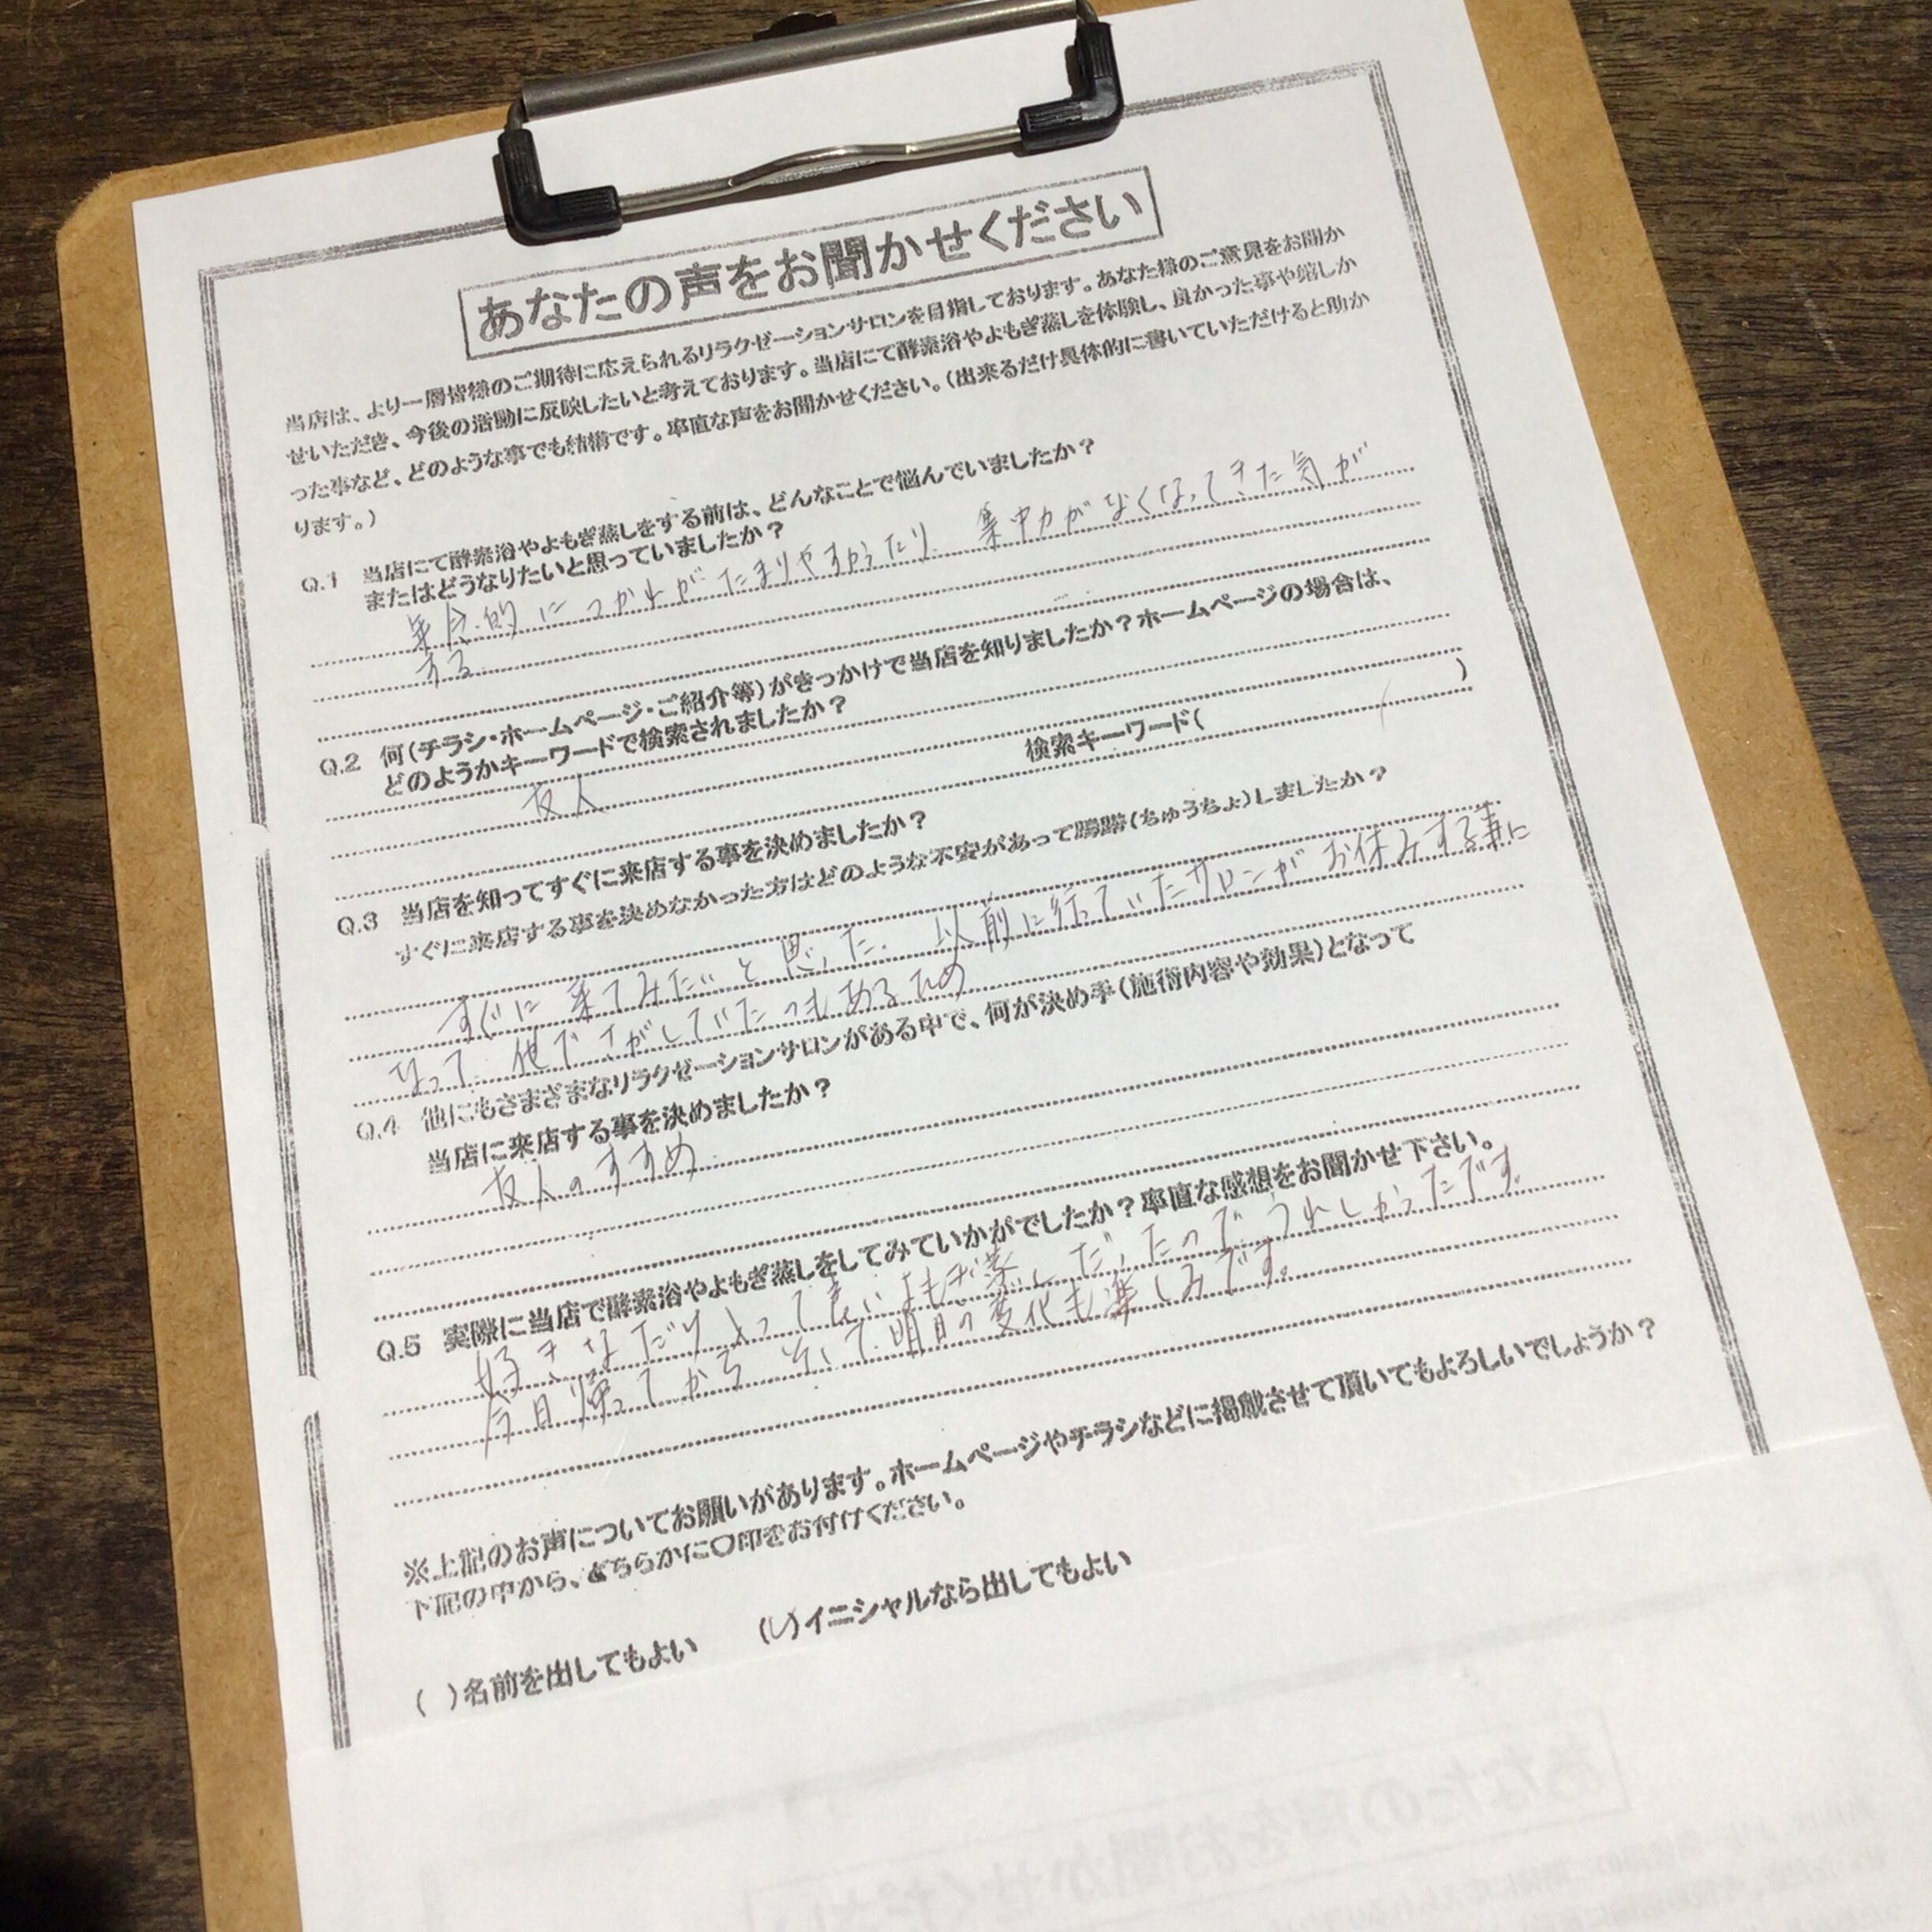 あなたの声をお聞かせください
当店は、より一層皆様のご期待に応えられるリラクゼーションサロンを目指しております。あなた様のご意見をお聞か
せいただき、今後の活動に反映したいと考えております。当店にて酵素浴やよもぎ蒸しを体験し、良かった事や嬉しか
った事など、どのような事でも結構です。率直な声をお聞かせください。(出来るだけ具体的に書いていただけると助か
ります。)
Q.1 当店にて酵素浴やよもぎ蒸しをする前は、どんなことで悩んでいましたか?
またはどうなりたいと思っていましたか?
年令的につかれがたまりやすかったり、集中力がなくなってきた気が
する
Q.2 何(チラシ・ホームページ・ご紹介等)がきっかけで当店を知りましたか?ホームページの場合は、
どのようかキーワードで検索されましたか?
友人 検索キーワード( )
Q.3 当店を知ってすぐに来店する事を決めましたか?
すぐに来店する事を決めなかった方はどのような不安があって躊躇(ちゅうちょ)しましたか?
すぐに来てみたいと思った。以前に行っていたサロンがお休みする事に
なって、他でさがしていたのもあるため
Q.4 他にもさまざまなリラクゼーションサロンがある中で、何が決め手(施術内容や効果)となって
当店に来店する事を決めましたか?
友人のすすめ
Q.5 実際に当店で酵素浴やよもぎ蒸しをしてみていかがでしたか?率直な感想をお聞かせ下さい。
好きなだけ入って良いよもぎ蒸しだったのでうれしかったです。
今日帰ってから そして明日の変化も楽しみです。
※上記のお声についてお願いがあります。ホームページやチラシなどに掲載させて頂いてもよろしいでしょうか?
下記の中から、どちらかに〇印をお付けください。
( )名前を出してもよい (レ)イニシャルなら出してもよい